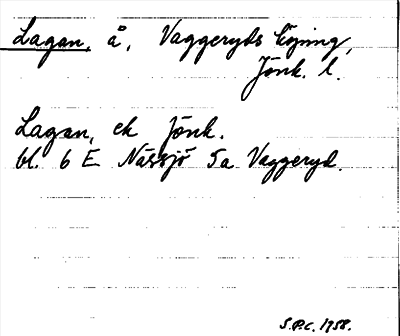 Lagan, å, Vaggeryds köping,
Jönk. l.
Lagan, ek Jönk.
bl. 6 E Nässjö 5a Vaggeryd.
S.P.C. 1958.